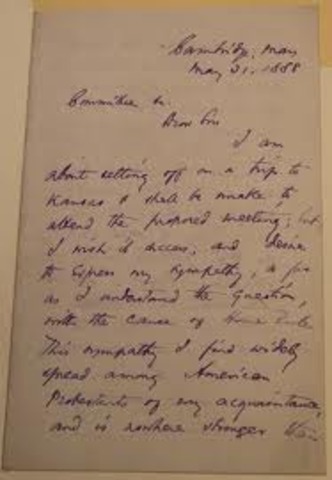 Cambridge, Mass
May 21, 1888
Committee &c.
Dear Sirs
I am
about setting off on a trip to
Kansas & shall be unable to
attend the proposed meeting; but
I wish it success, and desire
to express my sympathy, so far
as I understand the question,
with the cause of Home Rule.
This sympathy I find widely
spread among American
Protestants of my acquaintance,
and is nowhere stronger than